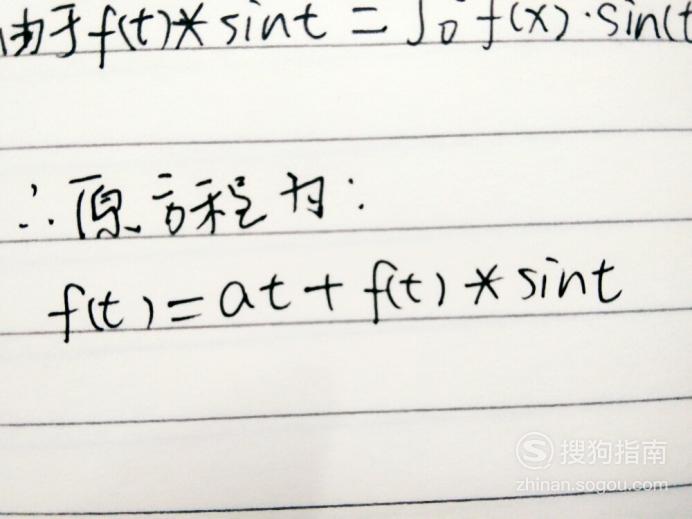 由于f(t)*sint = ∫₀ f(x)·sin(t
∴原方程为:
f(t)=at+f(t)*sint
搜狗指南
zhinan.sogou.com